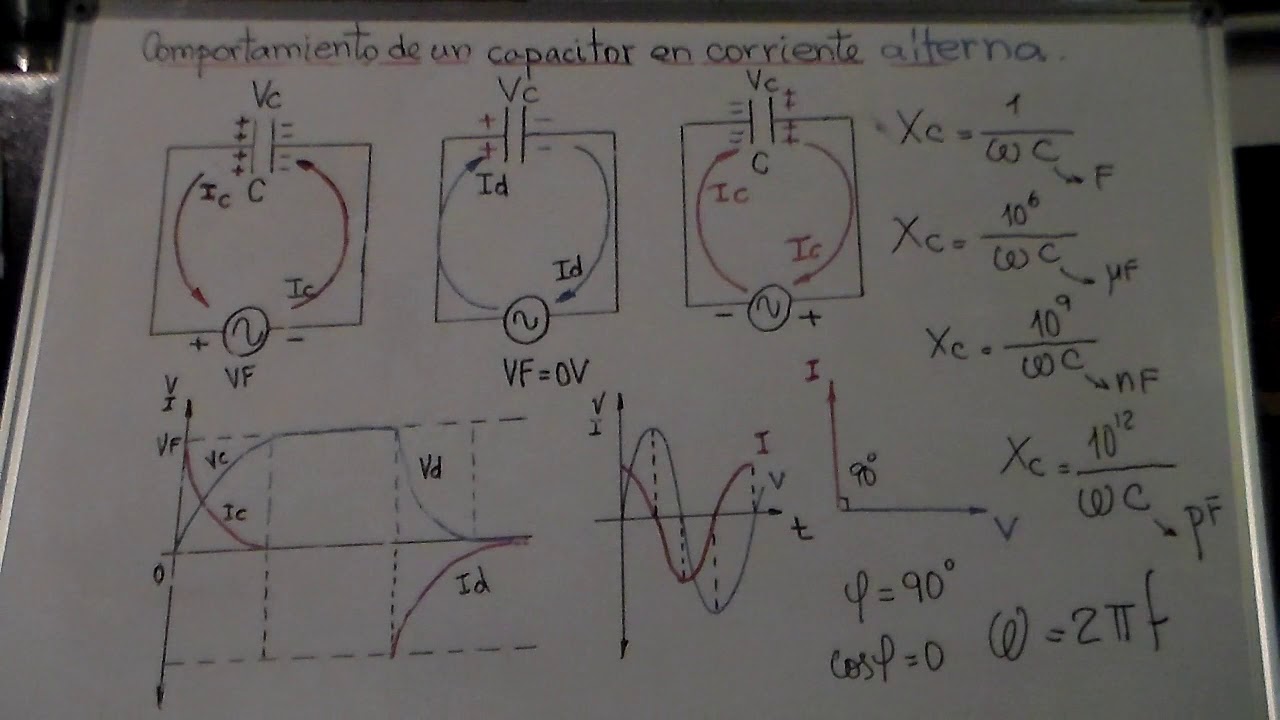 Comportamiento de un capacitor en corriente alterna.
Vc
+ + + + = =
Ic C
Ic
+ -
VF
Vc
+ + - -
Id
Id
VF=0V
Vc
= = ‡ ‡
C
Ic
Ic
- +
Xc = 1/ωC
F
Xc = 10⁶/ωC
μF
Xc = 10⁹/ωC
nF
Xc = 10¹²/ωC
pF
V
I
VF
Vc
Ic
Vd
Id
0
V
I
I
V
t
I
90°
V
φ=90°
cosφ=0
ω=2πf